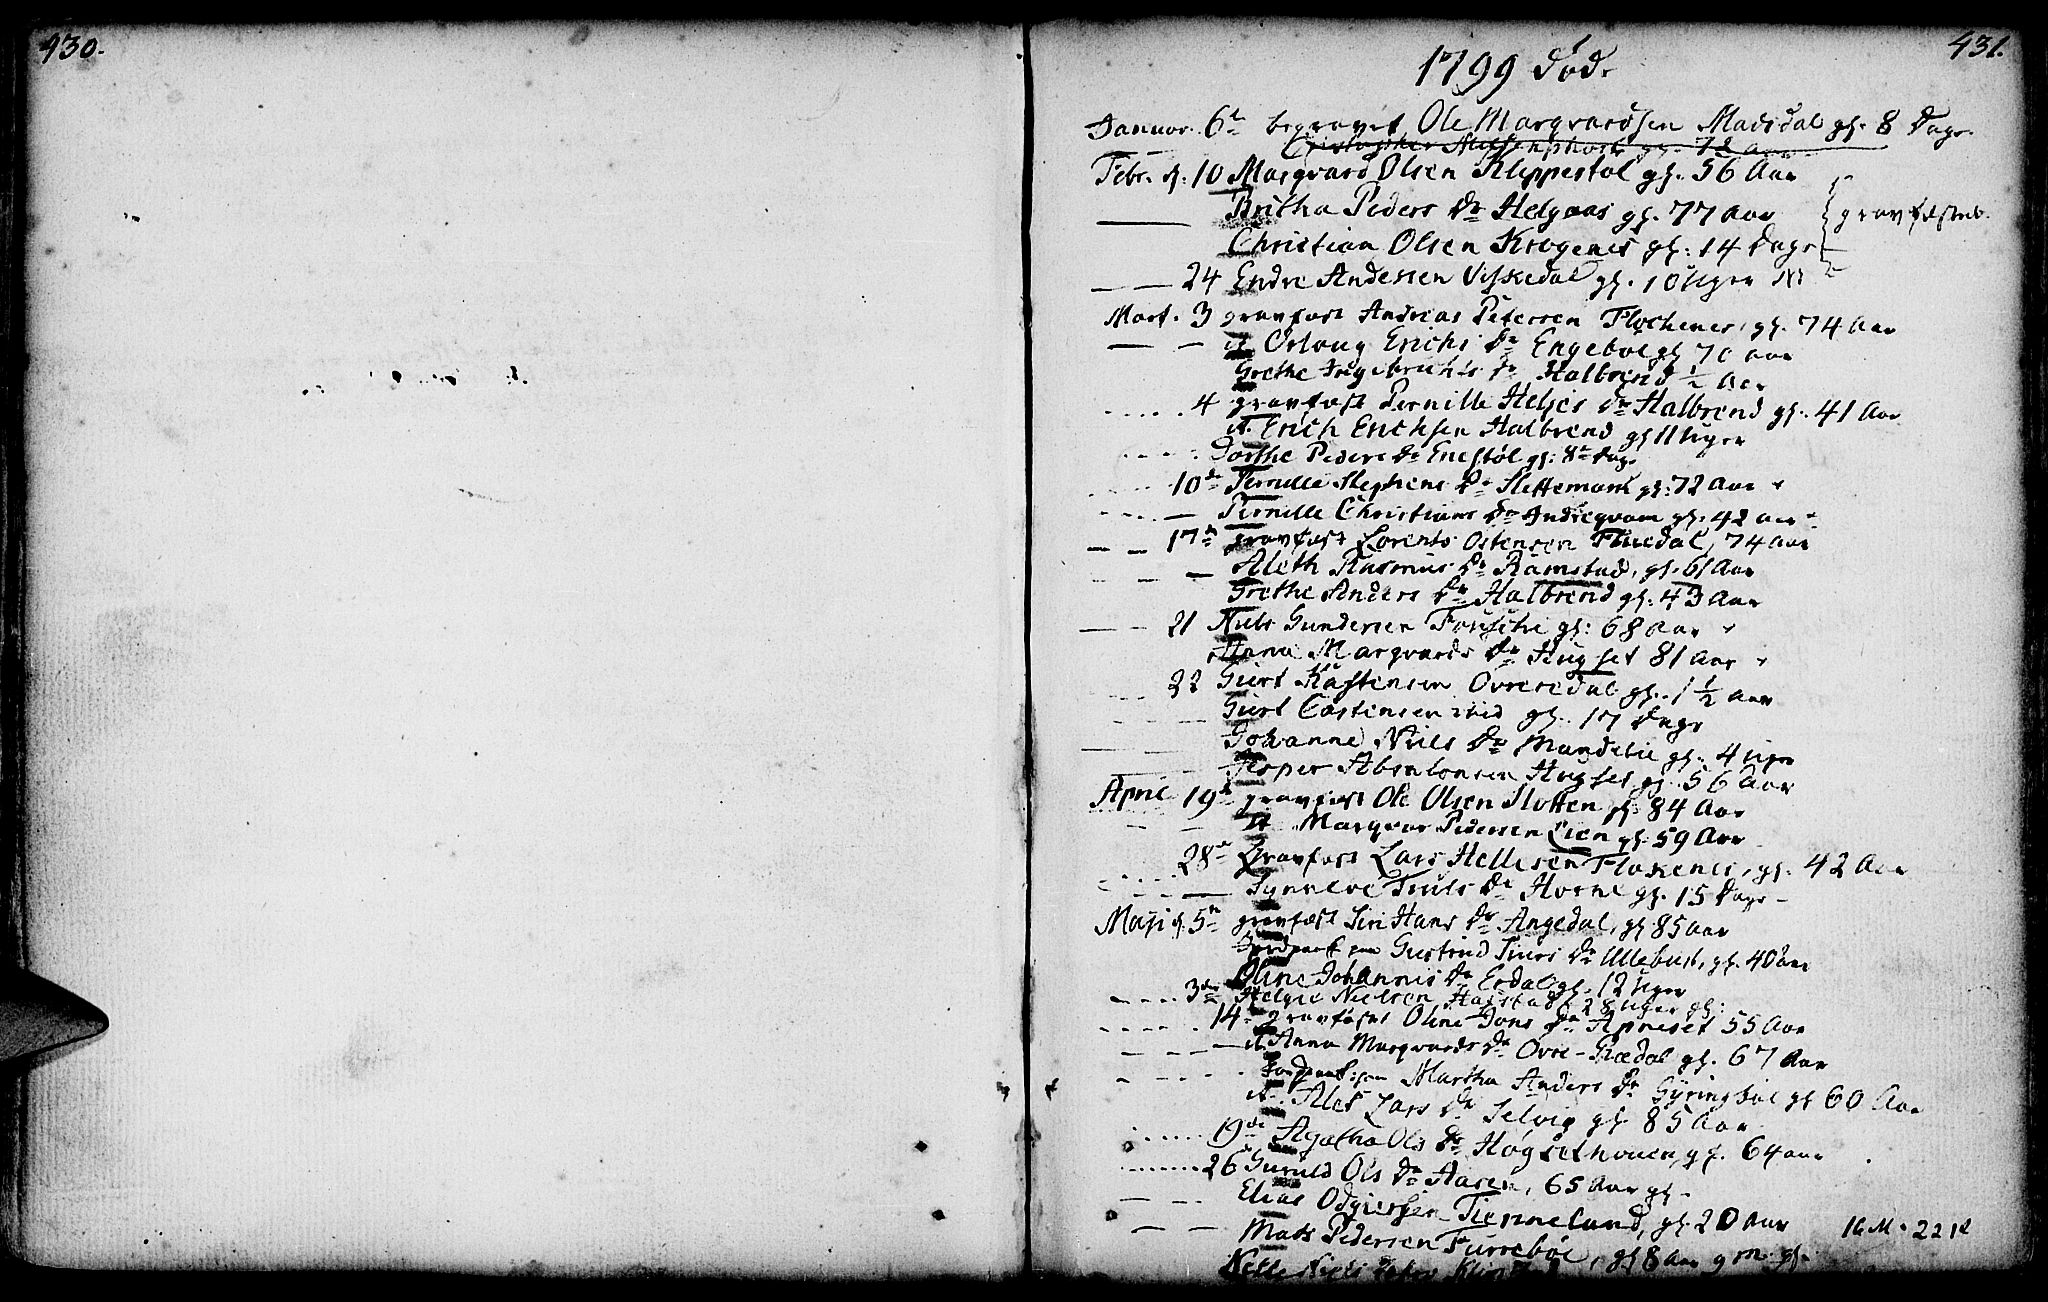 430.
431.
1799 død.
Januar. 6te begravet Ole Marqvardsen Madsdal gl. 8 Dage
Christopher Nilsen gl. 72 Aar
Febr. d. 10 Marqvard Olsen Kleppestøl gl. 56 Aar
Britha Peders Dr Helgaas gl. 77 Aar
gravfæstet.
Christian Olsen Krogenes gl: 14 Dage
24 Endre Andersen Viskedal gl. 10 Uger
Mart. 3 gravfæst Andreas Petersen Flochenes, gl. 74 Aar
it Oslaug Erichs Dr Engebøl gl 70 aar
Grethe Ingebrichts Dr Halbrend ½ Aar
4 gravfæst Pernille Helges Dr Halbrend gl. 41 Aar
it. Erich Erichsen Halbrend gl 11 Uger
Dorthe Peders Dr Enestøl gl: 8te Dage
10de Pernille Stephens Dr Slettemark gl: 72 Aar
Pernille Christians Dr Indreqvam gl. 42 aar
17de gravfæst Lorents Ostensen Fluedal, 74 aar
Aleth Rasmus Dr Ramstad, gl. 61 Aar
Grethe Anders Dr Halbrend gl: 43 Aar
21 Niels Gundersen Fonsche gl: 68 Aar
Anna Marqvards Dr Hugset 81 Aar
22 Giert Kastensen Ovresedal gl. 1½ aar
Giert Castensen ibid gl. 17 Dage
Johanne Niels Dr Mundelie gl. 4 Uger
Jesper Absalonsen Hugset gl. 56 Aar
April 19de gravfæst Ole Olsen Slotten gl. 84 Aar
it Marqvar Pedersen Lien gl. 59 Aar
28de Gravfæst Lars Hellesen Floxenes, gl. 42 Aar
Synneve Truls Dr Horne gl. 15 Dage
Maji d. 5te gravfæst Siri Hans Dr Angedal, gl 85 aar
Gurtrud Siurs Dr Ullebust, gl. 40 aar
Oline Johannis Dr Erdal gl. 12 Uger
3die Helge Nielsen Haastad, 28 Uger gl:
14 gravfæst Oline Jons Dr Apneset 55 Aar
it Anna Marqvards Dr Ovre-Rædal gl. 67 Aar
Martha Anders Dr Gyringbøl gl 60 Aar
it. Alet Lars Dr Selvig gl 85 Aar
19de Agatha Ols Dr Høgsethouen gl. 64 aar
26 Gunild Ols Dr Aasen, 65 Aar gl.
Elias Odgiersen Tiennelund, gl. 20 Aar
16 M. 22 K
Mads Pedersen Furrebøe, gl 8 Aar 9 M. gl.
Niels